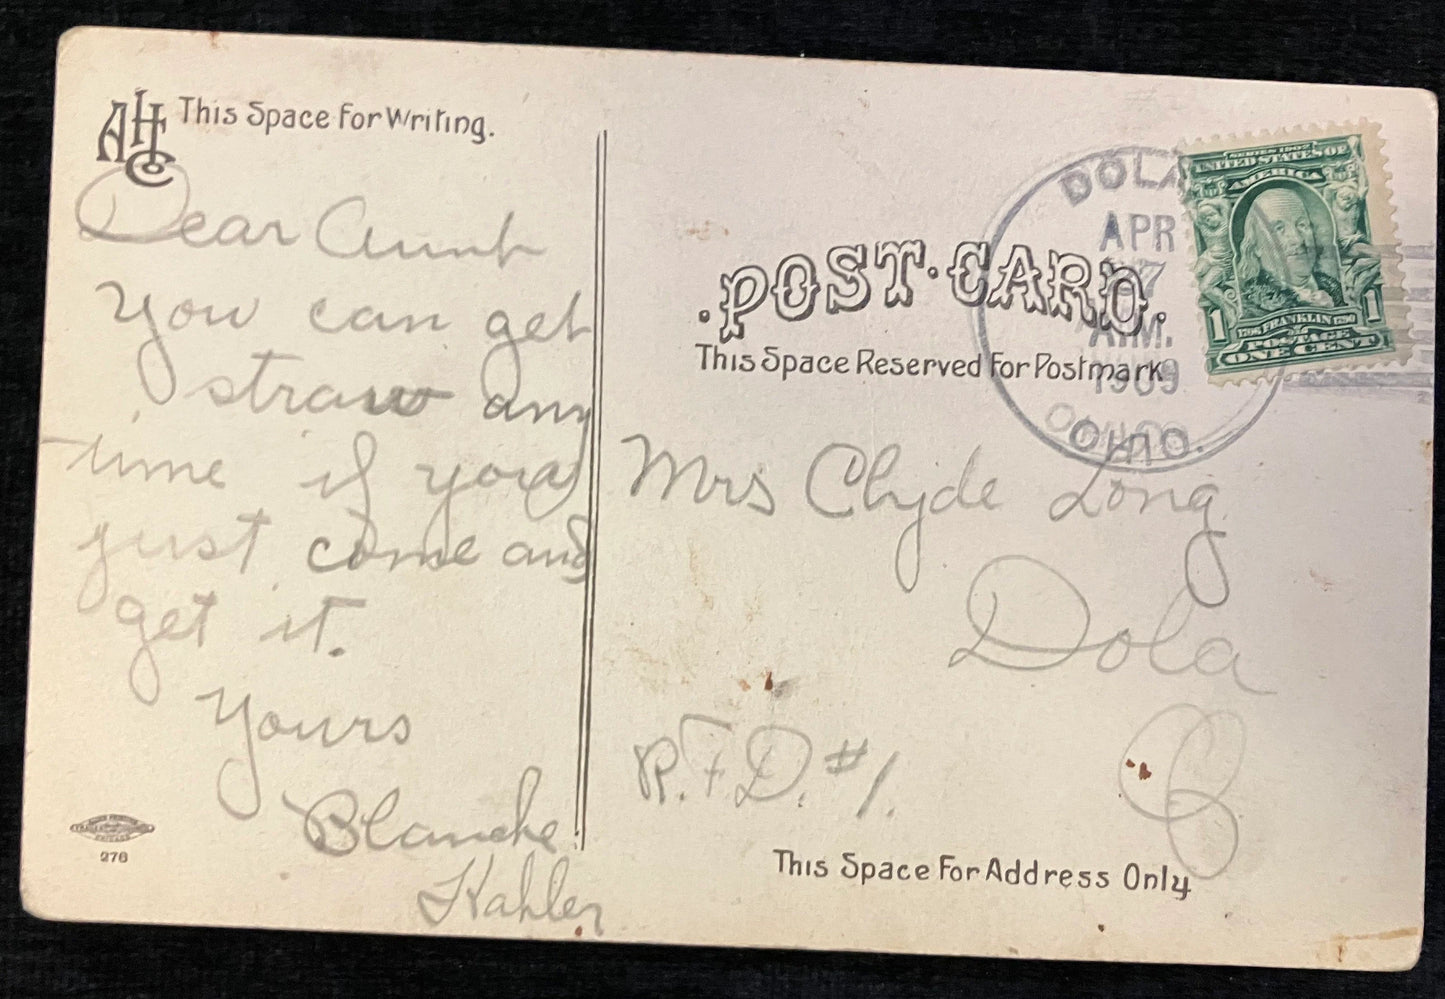 AHC
This Space For Writing.
Dear Aunt
You can get
straw any
time if you
just come and
get it.
Yours
Blanche
Kahler
276
DOLA
APR
7
A.M.
1909
OHIO.
SERIES 1902
UNITED STATES OF
AMERICA
1706 FRANKLIN 1790
POSTAGE
1 ONE CENT 1
.POST·CARD.
This Space Reserved For Postmark
Mrs Clyde Long
Dola
R.F.D. #1.
O
This Space For Address Only